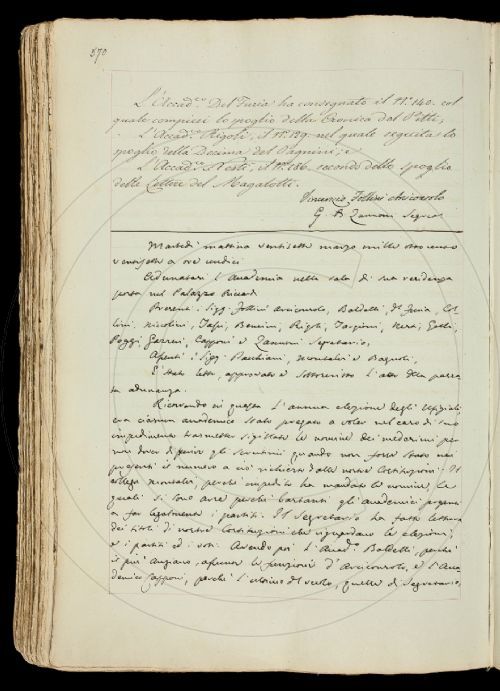 370
L'Accad.co Del Furia ha consegnato il N.o 140. col
quale compiesi lo spoglio della Cronica del Pitti;
L'Accad.co Rigoli, il N.o 129. nel quale seguita lo
spoglio della Decima del Pagnini; e
L'Accad.co Nesti, il N.o 186. secondo dello spoglio
delle Lettere del Magalotti.
Vincenzio Follini Arciconsolo
G B Zannoni Segret
Martedì mattina ventisette marzo mille otto cento
ventisette a ore undici
Adunatasi l'Accademia nella sala di sua residenza
posta nel Palazzo Riccardi
Presenti i Sigg. Follini Arciconsolo, Baldelli, Del Furia, Col
lini, Niccolini, Bencini, Rigoli, Targioni, Nesti, Gelli,
Poggi, Capponi e Zannoni Segretario,
Assenti i Sigg. Pacchiani, Montalvi e Bagnoli,
È stato letto, approvato e sottoscritto l'atto della passa
ta adunanza.
Ricorrendo in questa l'annua elezione degli Ufiziali
era ciascun accademico stato pregato a voler nel caso di suo
impedimento trasmettere sigillate le nomine dei medesimi per
non dover differir gli scrutinii quando non fosse stato nei
presenti il numero a ciò richiesto dalle nostre Costituzioni. Il
collega Montalvi, perchè impedito ha mandato le nomine, le
quali si sono arse perchè bastanti gli accademici presenti
a far legalmente i partiti. Il Segretario ha fatto lettura
dei titoli di nostre Costituzioni che riguardano le elezioni,
e i partiti ed i voti. Avendo poi l'Accad.co Baldelli, perchè
il più Anziano, assunte le funzioni d'Arciconsolo, e l'Acca
demico Capponi, perchè l'ultimo del ruolo, quelle di Segretario,